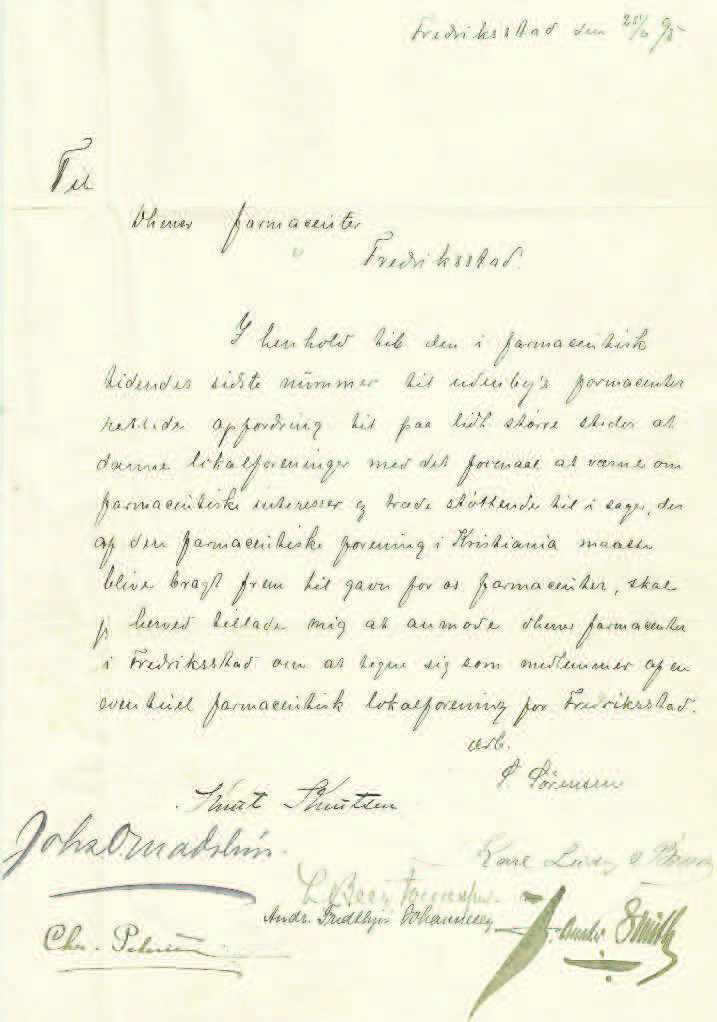 Fredriksstad den /95
Til
Dherrer farmaceuter
Fredriksstad.
I henhold til den i farmaceutisk
tidendes sidste nummer til udenby's farmaceuter
rettede opfordring til paa lidt større steder at
danne lokalforeninger med det formaal at værne om
farmaceutiske interesser og træde støttende til i sager, der
af den farmaceutiske forening i Kristiania maatte
blive bragt frem til gavn for os farmaceuter, skal
jeg herved tillade mig at anmode dherrer farmaceuter
i Fredriksstad om at tegne sig som medlemmer af en
eventuel farmaceutisk lokalforening for Fredriksstad.
ærb.
S. Sørensen
Knut Knutsen
Karl
Andr. Fridthjof Johannesen
Chr. Petersen
Smith